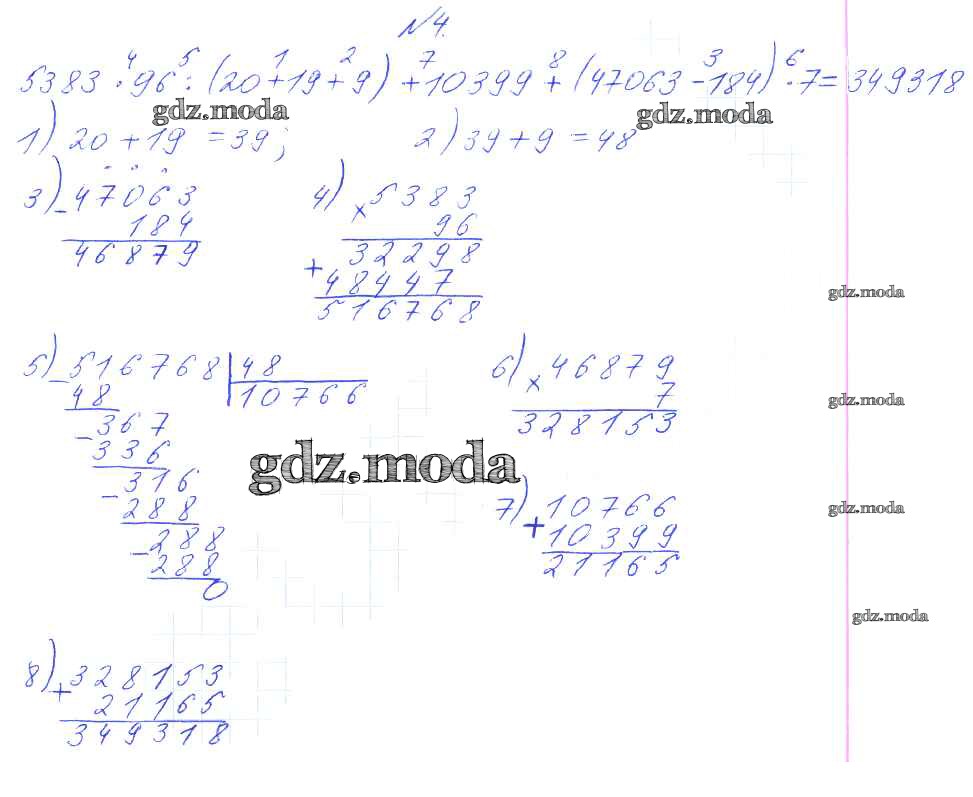 №4.
4 5 1 2 7 8 3 6
5383 · 96 : (20+19+9) + 10399 + (47063 - 184) · 7 = 349318
gdz.moda gdz.moda
1) 20 + 19 = 39; 2) 39 + 9 = 48
3) - 47063
184
46879
4) × 5383
96
32298
+ 48447
516768
gdz.moda
5) - 516768 | 48
48 10766
- 367
336
- 316
288
- 288
288
0
6) × 46879
7
328153
gdz.moda
gdz.moda
7) + 10766
10399
21165
gdz.moda
gdz.moda
8) + 328153
21165
349318